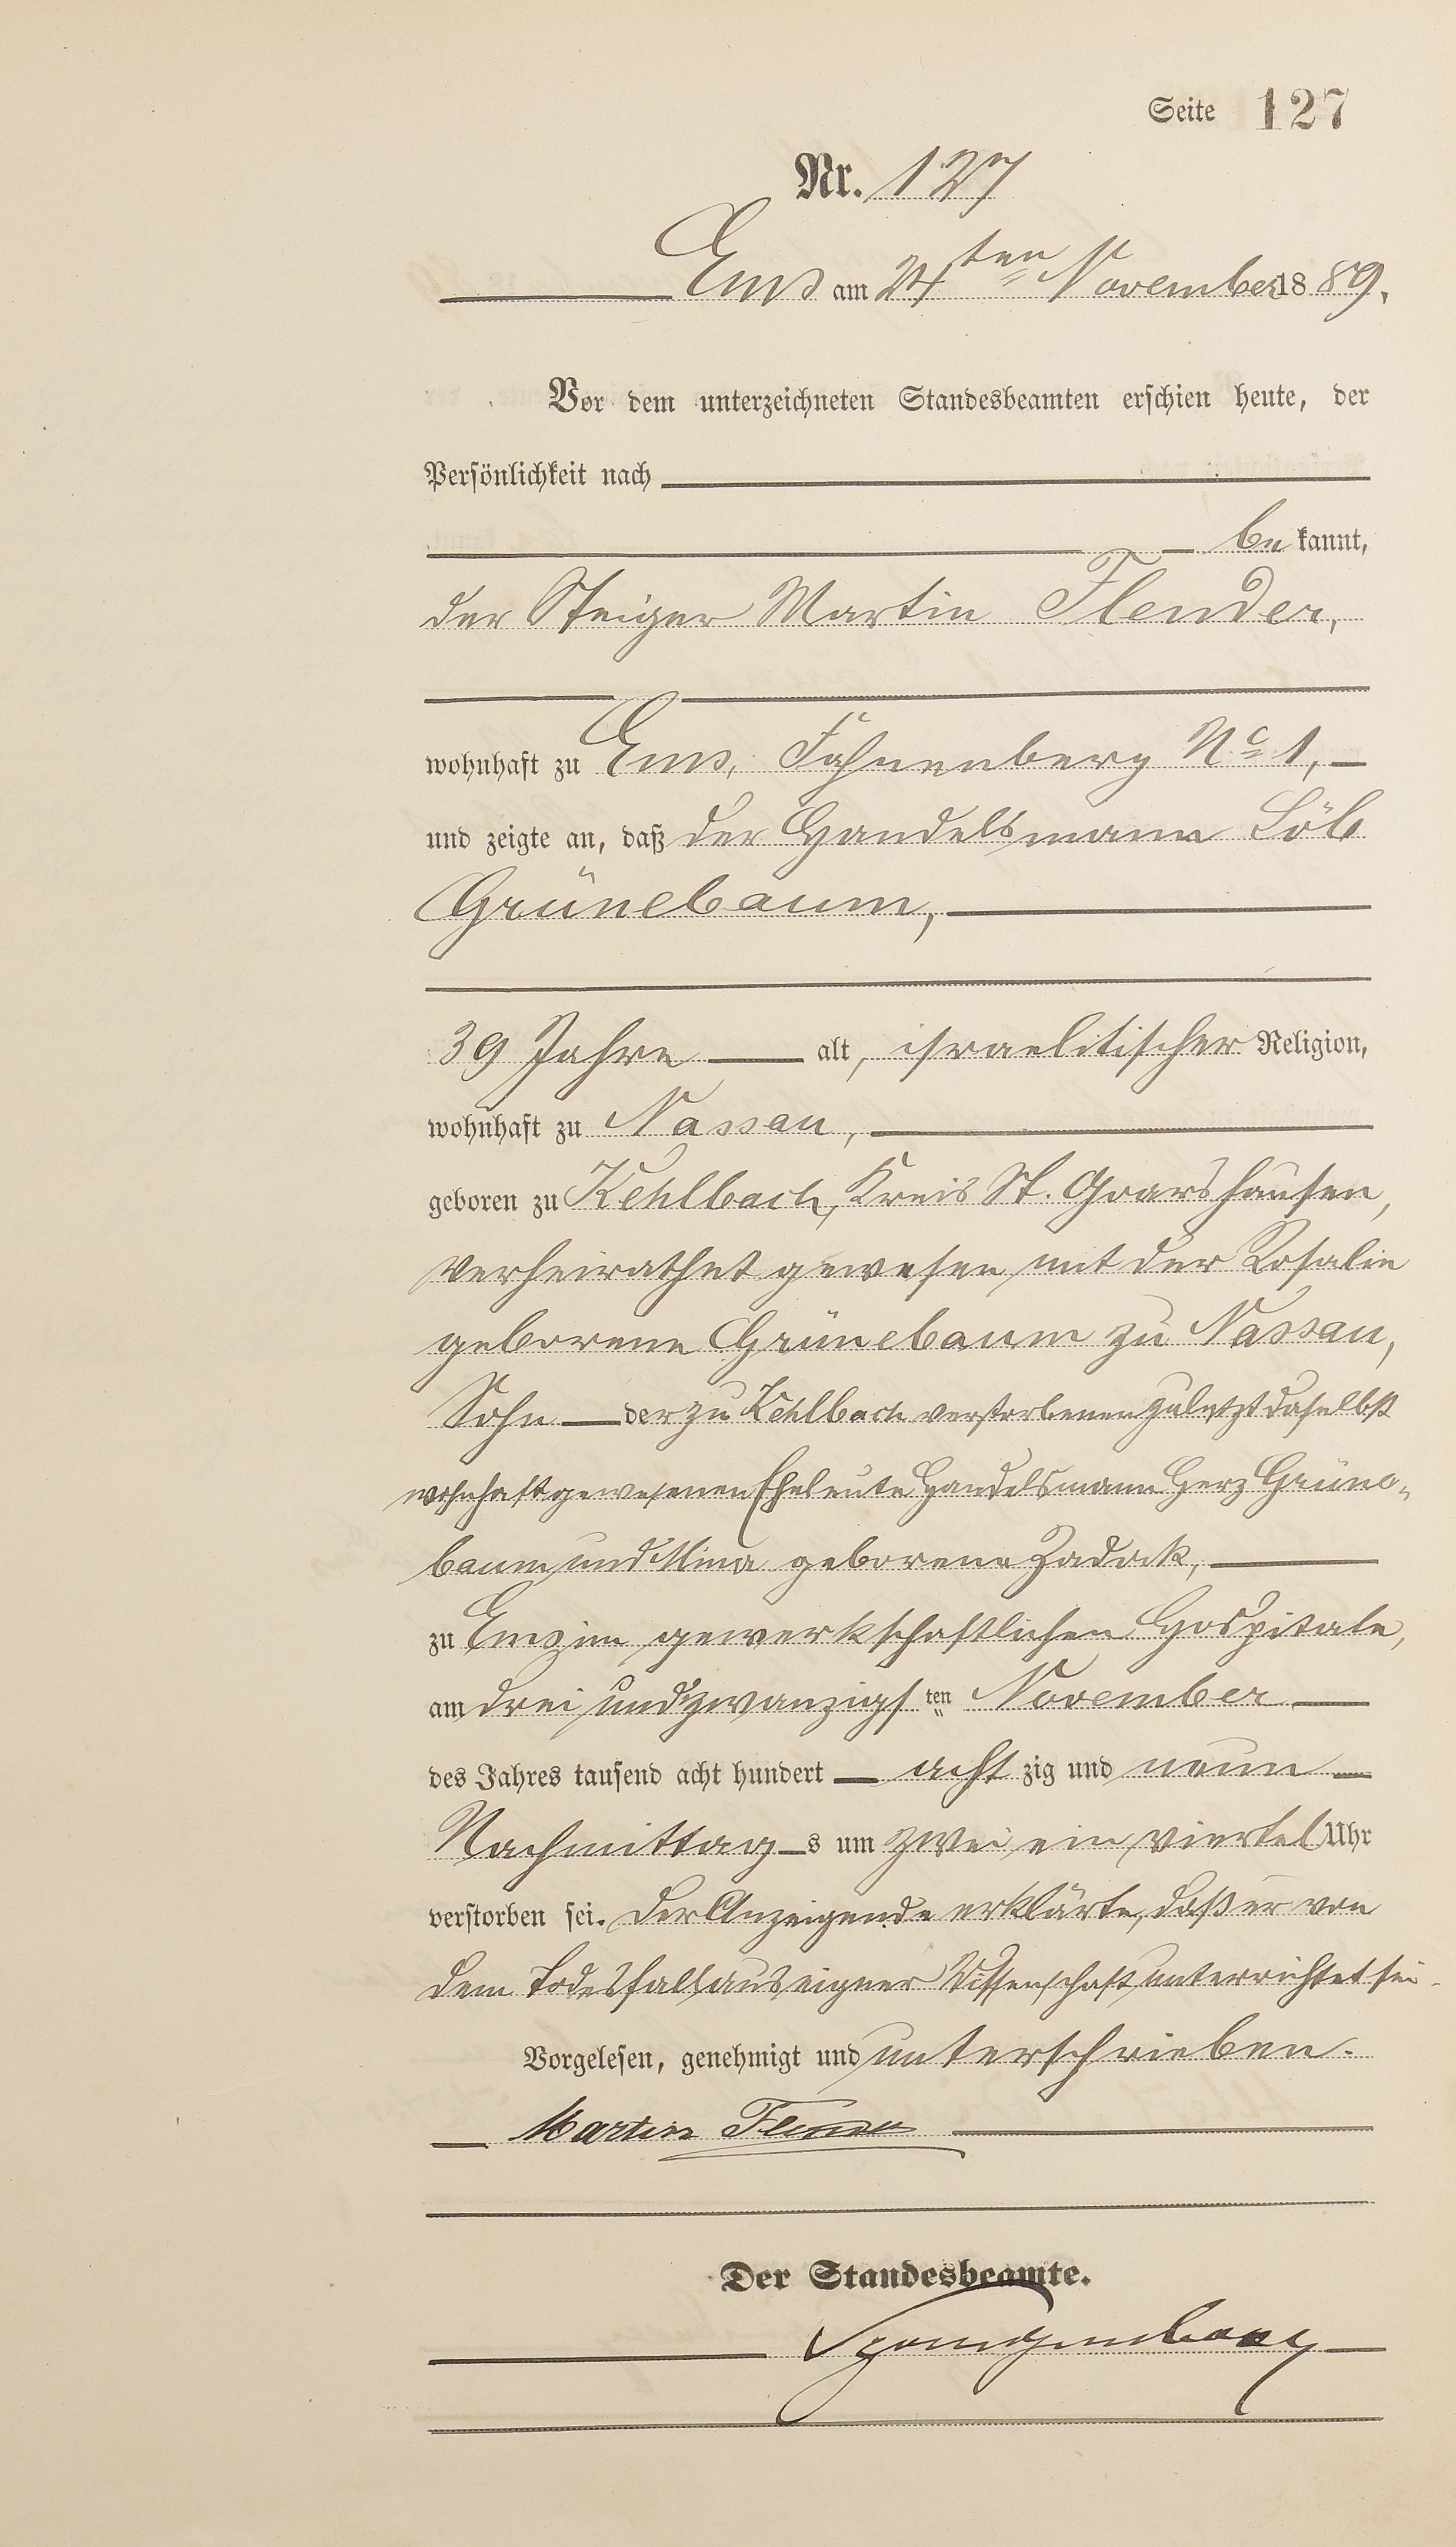 Seite 127
Nr. 127
Ems am 24ten November 1889.
Vor dem unterzeichneten Standesbeamten erschien heute, der
Persönlichkeit nach
bekannt,
der Steiger Martin Flender,
wohnhaft zu Ems, Fahnenberg No 1,
und zeigte an, daß der Handelsmann Löb
Grünebaum,
39 Jahre alt, israelitischer Religion,
wohnhaft zu Nassau,
geboren zu Kehlbach, Kreis St. Goarshausen,
verheirathet gewesen mit der Rosalie
geborene Grünebaum zu Nassau,
Sohn der zu Kehlbach verstorbenen zuletzt daselbst
wohnhaft gewesenen Eheleute Handelsmann Herz Grüne-
baum und Mina geborene Zadock,
zu Ems im gewerkschaftlichen Hospitale,
am drei und zwanzigsten November
des Jahres tausend acht hundert achtzig und neun
Nachmittags um zwei ein viertel Uhr
verstorben sei. Der Anzeigende erklärte, daß er von
dem Todesfall aus eigner Wissenschaft unterrichtet sei.
Vorgelesen, genehmigt und unterschrieben.
Martin Flender
Der Standesbeamte.
Spangenberg